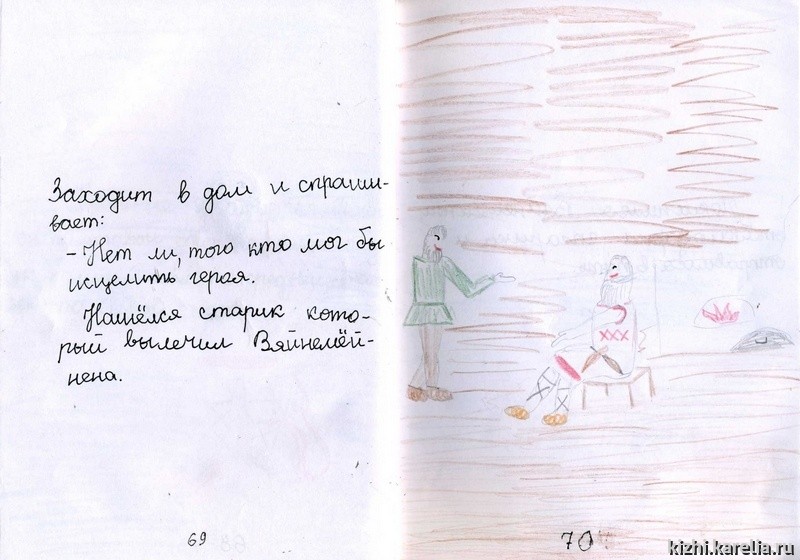 Заходит в дом и спраши-
вает:
– Нет ли, того кто мог бы
исцелить героя.
Нашёлся старик кото-
рый вылечил Вяйнемёй-
нена.
69
70
XXX
kizhi.karelia.ru